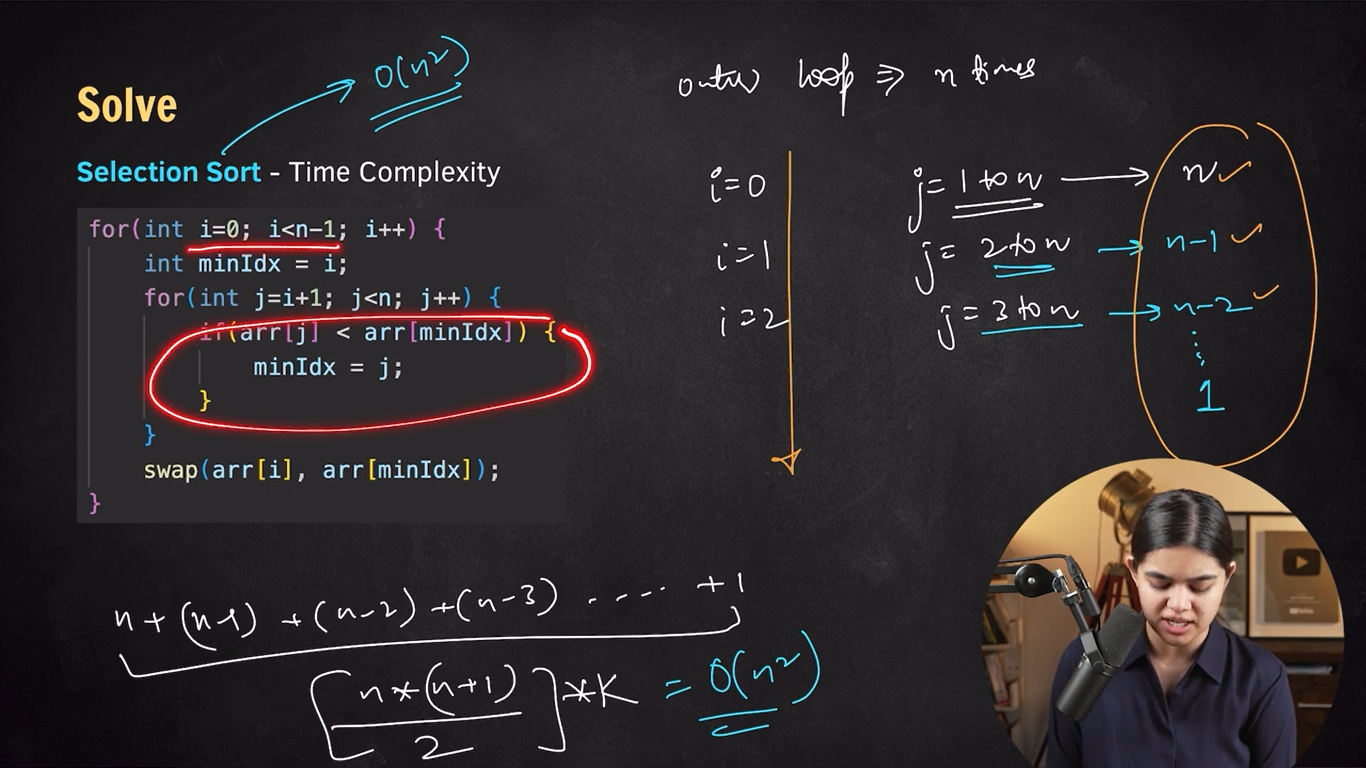 Solve
O(n²)
Selection Sort - Time Complexity
for(int i=0; i<n-1; i++) {
int minIdx = i;
for(int j=i+1; j<n; j++) {
if(arr[j] < arr[minIdx]) {
minIdx = j;
}
}
swap(arr[i], arr[minIdx]);
}
outer loop ⇒ n times
i=0 j= 1 to n → n ✓
i=1 j= 2 to n → n-1 ✓
i=2 j= 3 to n → n-2 ✓
⋮
1
n+(n-1)+(n-2)+(n-3) ..... +1
[n*(n+1)/2]*K = O(n²)